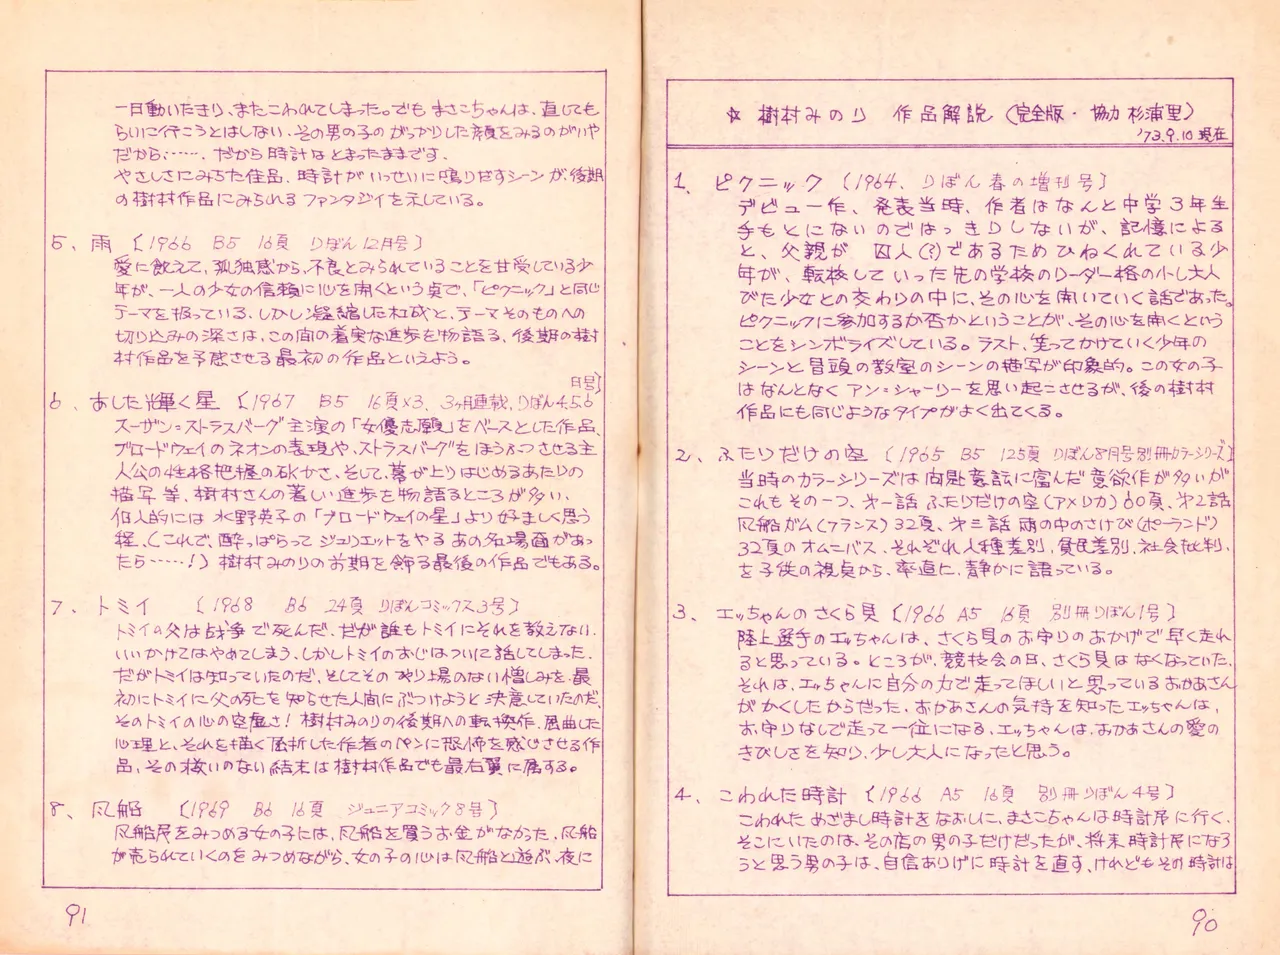 ☆ 樹村みのり 作品解説 (完全版・協力 杉浦里)
'73.9.10 現在
1、ピクニック 〔1964、りぼん春の増刊号〕
デビュー作、発表当時、作者はなんと中学3年生
手もとにないのではっきりしないが、記憶による
と、父親が 囚人(?)であるためひねくれている少
年が、転校していった先の学校のリーダー格の小し大人
びた少女との交わりの中に、その心を開いていく話であった。
ピクニックに参加するか否かということが、その心を開くという
ことをシンボライズしている。ラスト、笑ってかけていく少年の
シーンと冒頭の教室のシーンの描写が印象的。この女の子
はなんとなく アン=シャーリーを思い起こさせるが、後の樹村
作品にも同じようなタイプがよく出てくる。
2、ふたりだけの空 〔1965 B5 125頁 りぼん8月号別冊カラーシリーズ〕
当時のカラーシリーズは内容意図に富んだ意欲作が多いが
これもその一つ、オ一話 ふたりだけの空(アメリカ)60頁、オ2話
風船ガム(フランス)32頁、オ三話 雨の中のさけび(ポーランド)
32頁のオムニバス、それぞれ人種差別、貧民差別、社会批判、
を子供の視点から、率直に、静かに語っている。
3、エッちゃんのさくら貝 〔1966 A5 16頁 別冊りぼん1号〕
陸上選手のエッちゃんは、さくら貝のお守りのおかげで早く走れ
ると思っている。ところが、競技会の日、さくら貝はなくなっていた、
それは、エッちゃんに自分の力で走ってほしいと思っているおかあさん
がかくしたからだった、おかあさんの気持を知ったエッちゃんは、
お守りなしで走って一位になる、エッちゃんは、おかあさんの愛の
きびしさを知り、少し大人になったと思う。
4、こわれた時計 〔1966 A5 16頁 別冊りぼん4号〕
こわれためざまし時計をなおしに、まさこちゃんは時計屋に行く、
そこにいたのは、その店の男の子だけだったが、将来時計屋になろ
うと思う男の子は、自信ありげに時計を直す、けれどもその時計は
90
一日動いたきり、またこわれてしまった。でも まさこちゃんは、直しても
らいに行こうとはしない、その男の子のがっかりした顔をみるのがいや
だから……、だから時計はとまったままです、
やさしさにみちた佳品、時計がいっせいに鳴りだすシーンが、後期
の樹村作品にみられるファンタジイを示している。
5、雨 〔1966 B5 16頁 りぼん12月号〕
愛に飢えて、孤独感から、不良とみられていることを甘受している少
年が、一人の少女の信頼に心を開くという点で、「ピクニック」と同じ
テーマを扱っている、しかし凝縮した構成と、テーマそのものへの
切り込みの深さは、この間の着実な進歩を物語る、後期の樹
村作品を予感させる最初の作品といえよう。
6、あした輝く星 〔1967 B5 16頁×3、3ヶ月連載、りぼん4.5.6
月号〕
スーザン=ストラスバーグ主演の「女優志願」をベースとした作品、
ブロードウェイのネオンの表現や、ストラスバーグをほうふつさせる主
人公の性格把握の確かさ、そして、幕が上りはじめるあたりの
描写等、樹村さんの著しい進歩を物語るところが多い、
個人的には 水野英子の「ブロードウェイの星」より好ましく思う
程、(これで、酔っぱらって ジュリエットをやる あの名場面があっ
たら……!) 樹村みのりの前期を飾る最後の作品でもある。
7、トミイ 〔1968 B6 24頁 りぼんコミックス3号〕
トミイの父は戦争で死んだ、だが誰もトミイにそれを教えない、
いいかけてはやめてしまう、しかしトミイのおじはついに話してしまった、
だがトミイは知っていたのだ、そしてそのやり場のない憎しみを、最
初にトミイに父の死を知らせた人間にぶつけようと決意していたのだ、
そのトミイの心の空虚さ! 樹村みのりの後期への転換作、屈曲した
心理と、それを描く屈折した作者のペンに恐怖を感じさせる作
品、その救いのない結末は樹村作品でも最右翼に属する。
8、風船 〔1969 B6 16頁 ジュニアコミック8号〕
風船屋をみつめる女の子には、風船を買うお金がなかった、風船
が売られていくのをみつめながら、女の子の心は風船と遊ぶ、夜に
91